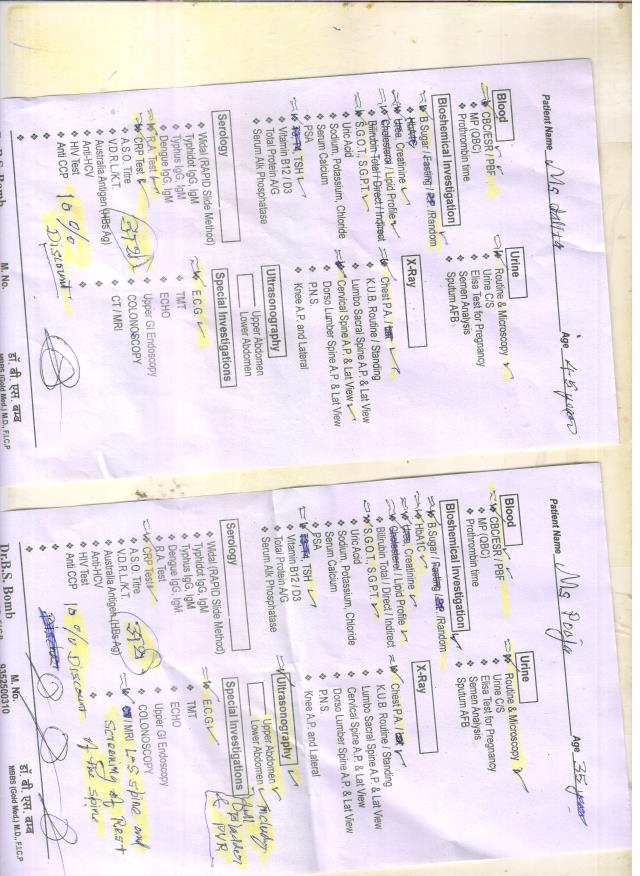 Patient Name Ms Lalita Age 45 years
Blood
❖ CBC/ESR / PBF
❖ MP (QBC)
❖ Prothrombin time
Bioshemical Investigation
❖ B.Sugar / Fasting / P.P. /Random
❖ HbA1C
❖ Urea, Creatinine
❖ Cholesterol / Lipid Profile
❖ Bilirubin Total / Direct / Indirect
❖ S.G.O.T., S.G.P.T.
❖ Uric Acid
❖ Sodium, Potassium, Chloride
❖ Serum Calcium
❖ PSA
❖ T3-T4, TSH
❖ Vitamin B12 / D3
❖ Total Protein A/G
❖ Serum Alk Phosphatase
Serology
❖ Widal (RAPID Slide Method)
❖ Typhidot IgG, IgM
❖ Typhus IgG, IgM
❖ Dengue IgG, IgM
❖ R.A. Test
❖ CRP Test
❖ A.S.O. Titre
❖ V.D.R.L./K.T.
❖ Australia Antigen (HBs Ag)
❖ Anti-HCV
❖ HIV Test
❖ Anti CCP
10% Discount
Urine
❖ Routine & Microscopy
❖ Urine C/S
❖ Elisa Test for Pregnancy
❖ Semen Analysis
Sputum AFB
X-Ray
❖ Chest P.A. / Lat
❖ K.U.B. Routine / Standing
❖ Lumbo Sacral Spine A.P. & Lat View
❖ Cervical Spine A.P. & Lat View
❖ Dorso Lumber Spine A.P. & Lat View
❖ P.N.S.
❖ Knee A.P. and Lateral
Ultrasonography
Upper Abdomen
Lower Abdomen
Special Investigations
❖ E.C.G.
❖ TMT
❖ ECHO
❖ Upper GI Endoscopy
❖ COLONOSCOPY
❖ CT / MRI
B.S. Bomb
M. No.
डॉ बी एस बम्ब
MBBS (Gold Med.) M.D., F.I.C.P
Patient Name Ms Pooja Age 35 years
Blood
❖ CBC/ESR / PBF
❖ MP (QBC)
❖ Prothrombin time
Bioshemical Investigation
❖ B.Sugar / Fasting / P.P. /Random
❖ HbA1C
❖ Urea, Creatinine
❖ Cholesterol / Lipid Profile
❖ Bilirubin Total / Direct / Indirect
❖ S.G.O.T., S.G.P.T.
❖ Uric Acid
❖ Sodium, Potassium, Chloride
❖ Serum Calcium
❖ PSA
❖ T3-T4, TSH
❖ Vitamin B12 / D3
❖ Total Protein A/G
❖ Serum Alk Phosphatase
Serology
❖ Widal (RAPID Slide Method)
❖ Typhidot IgG, IgM
❖ Typhus IgG, IgM
❖ Dengue IgG, IgM
❖ R.A. Test
❖ CRP Test
❖ A.S.O. Titre
❖ V.D.R.L./K.T.
❖ Australia Antigen (HBs Ag)
❖ Anti-HCV
❖ HIV Test
❖ Anti CCP
10% Discount
Urine
❖ Routine & Microscopy
❖ Urine C/S
❖ Elisa Test for Pregnancy
❖ Semen Analysis
Sputum AFB
X-Ray
❖ Chest P.A. / Lat
❖ K.U.B. Routine / Standing
❖ Lumbo Sacral Spine A.P. & Lat View
❖ Cervical Spine A.P. & Lat View
❖ Dorso Lumber Spine A.P. & Lat View
❖ P.N.S.
❖ Knee A.P. and Lateral
Ultrasonography
Upper Abdomen
Lower Abdomen
& PVR
Special Investigations
❖ E.C.G.
❖ TMT
❖ ECHO
❖ Upper GI Endoscopy
❖ COLONOSCOPY
❖ CT / MRI L-S spine and
Screening of Rest
of the spine
Dr.B.S. Bomb
M. No.
9352500310
डॉ. बी. एस. बम्ब
MBBS (Gold Med.) M.D., F.I.C.P